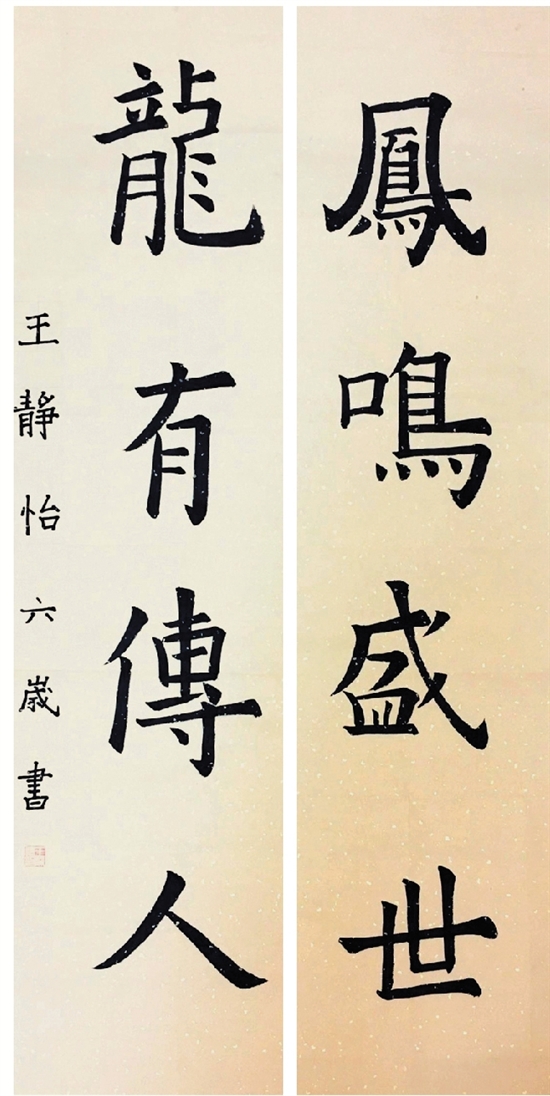 鳳鳴盛世
龍有傳人
王靜怡六歲書